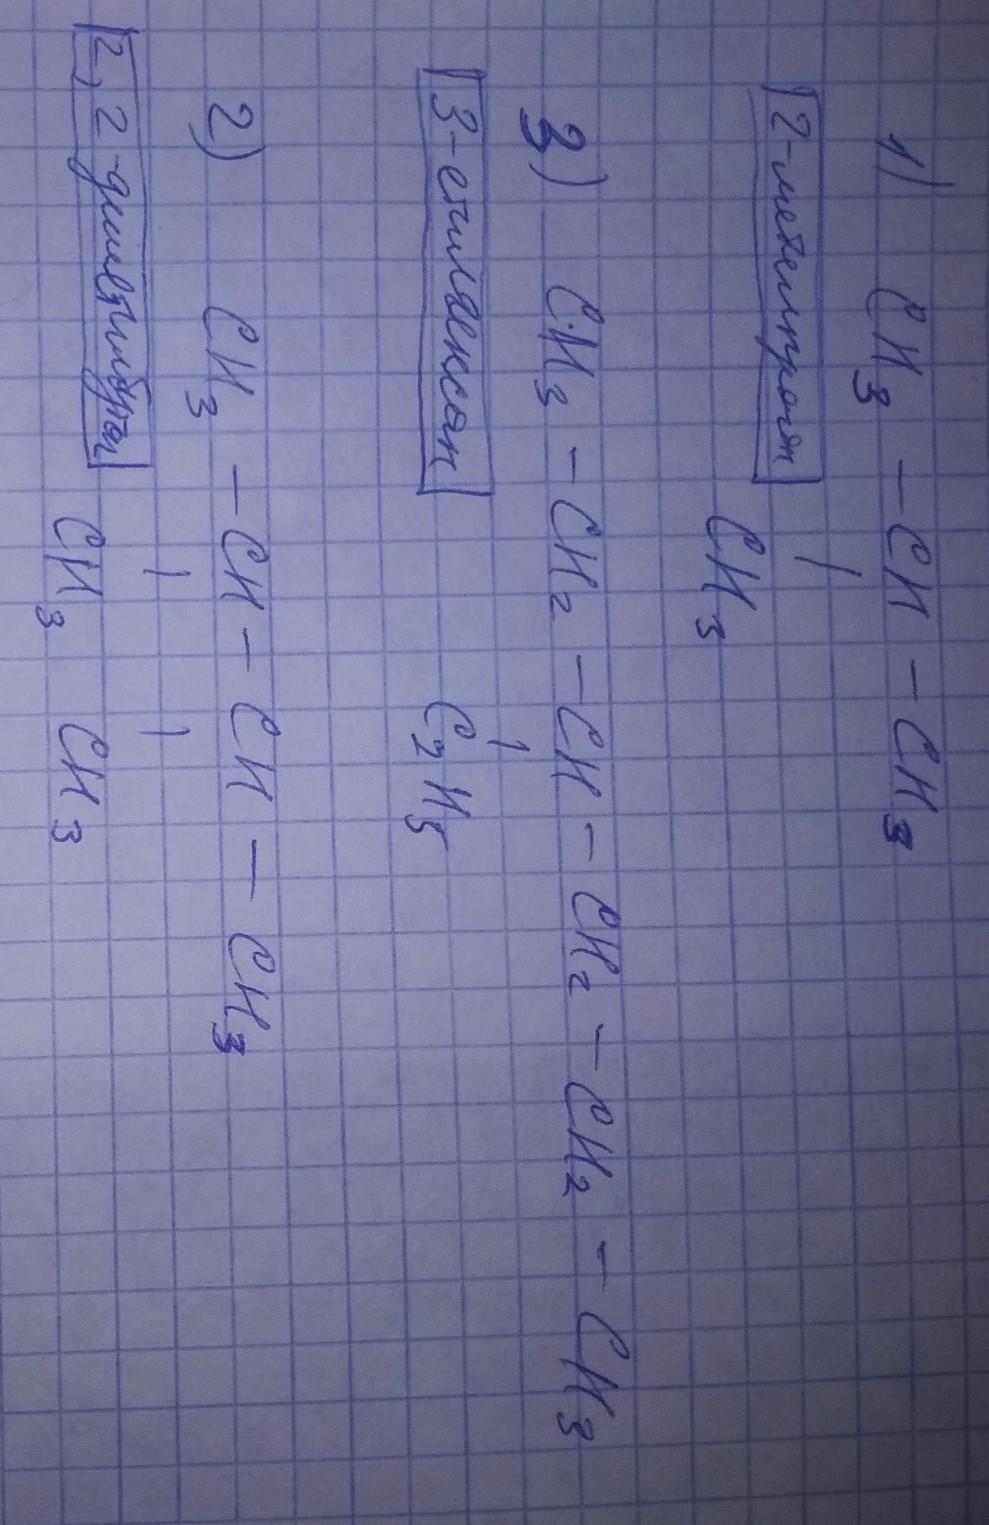 1) CH₃ – CH – CH₃
|
CH₃
2-метилпропан
3) CH₃ – CH₂ – CH – CH₂ – CH₂ – CH₃
|
C₂H₅
3-етилгексан
2) CH₃ – CH – CH – CH₃
| |
CH₃ CH₃
2,2-диметилбутан